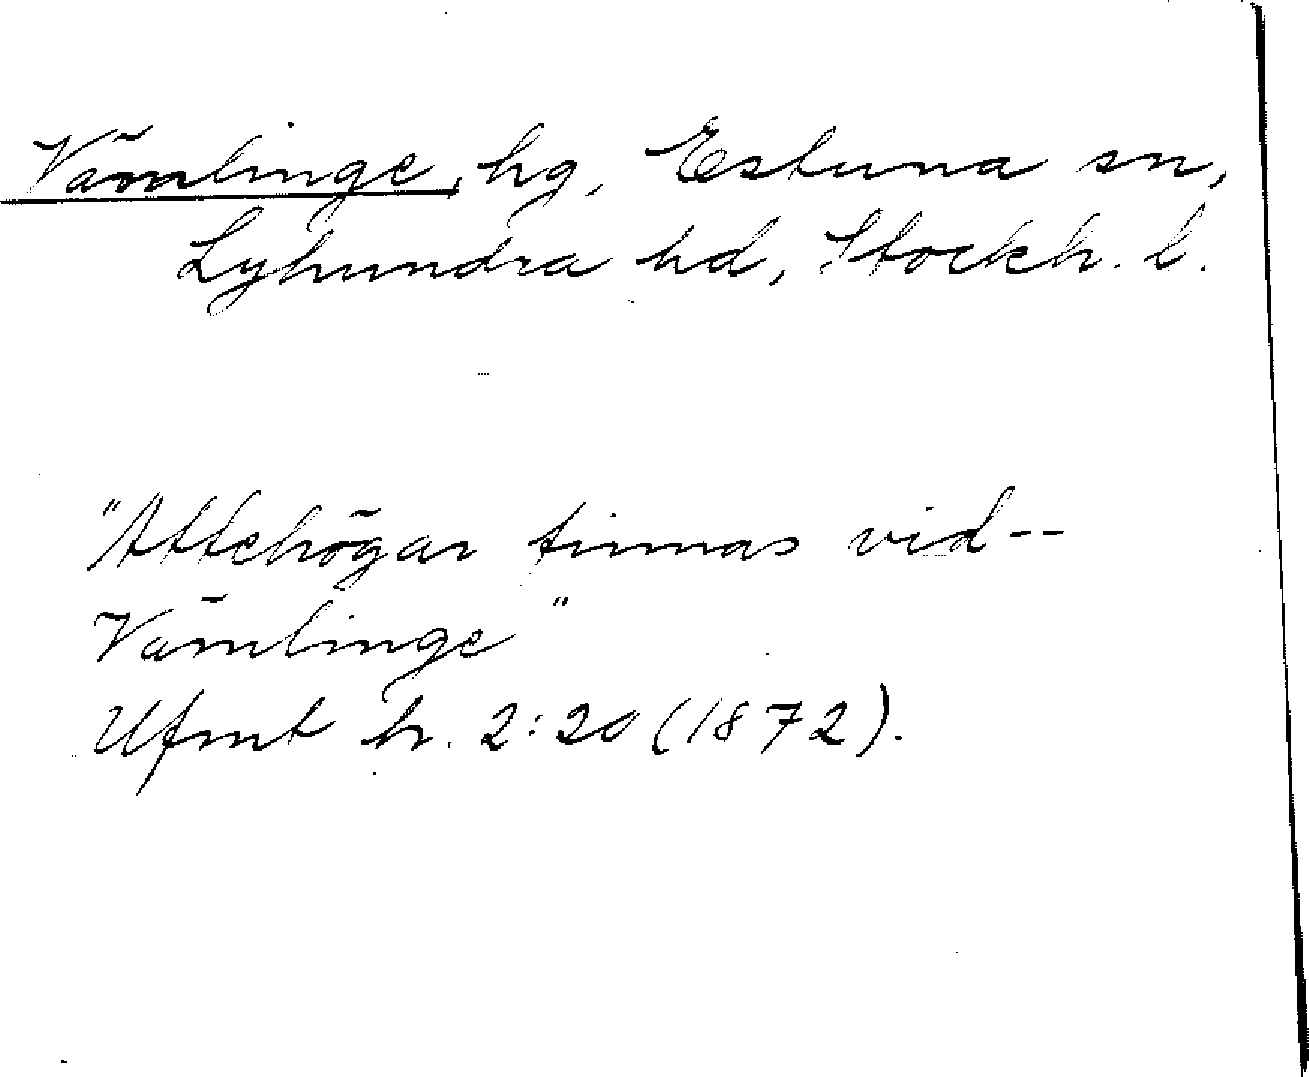 Vämlinge, hg, Estuna sn,
Lyhundra hd, Stockh. l.
"Ättehögar finnas vid--
Vämlinge"
Ufmt h. 2:20 (1872).